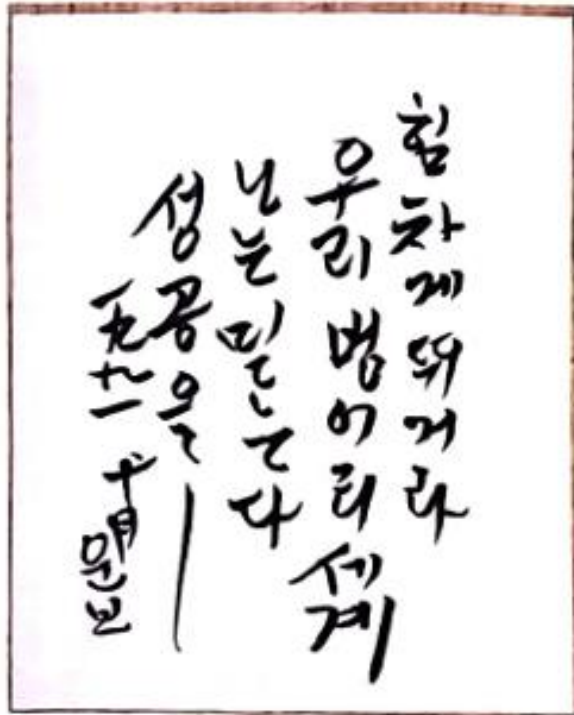 힘차게 뛰거라
우리 병아리 세계
나는 믿는다
성공을
一九九一 十月 운보